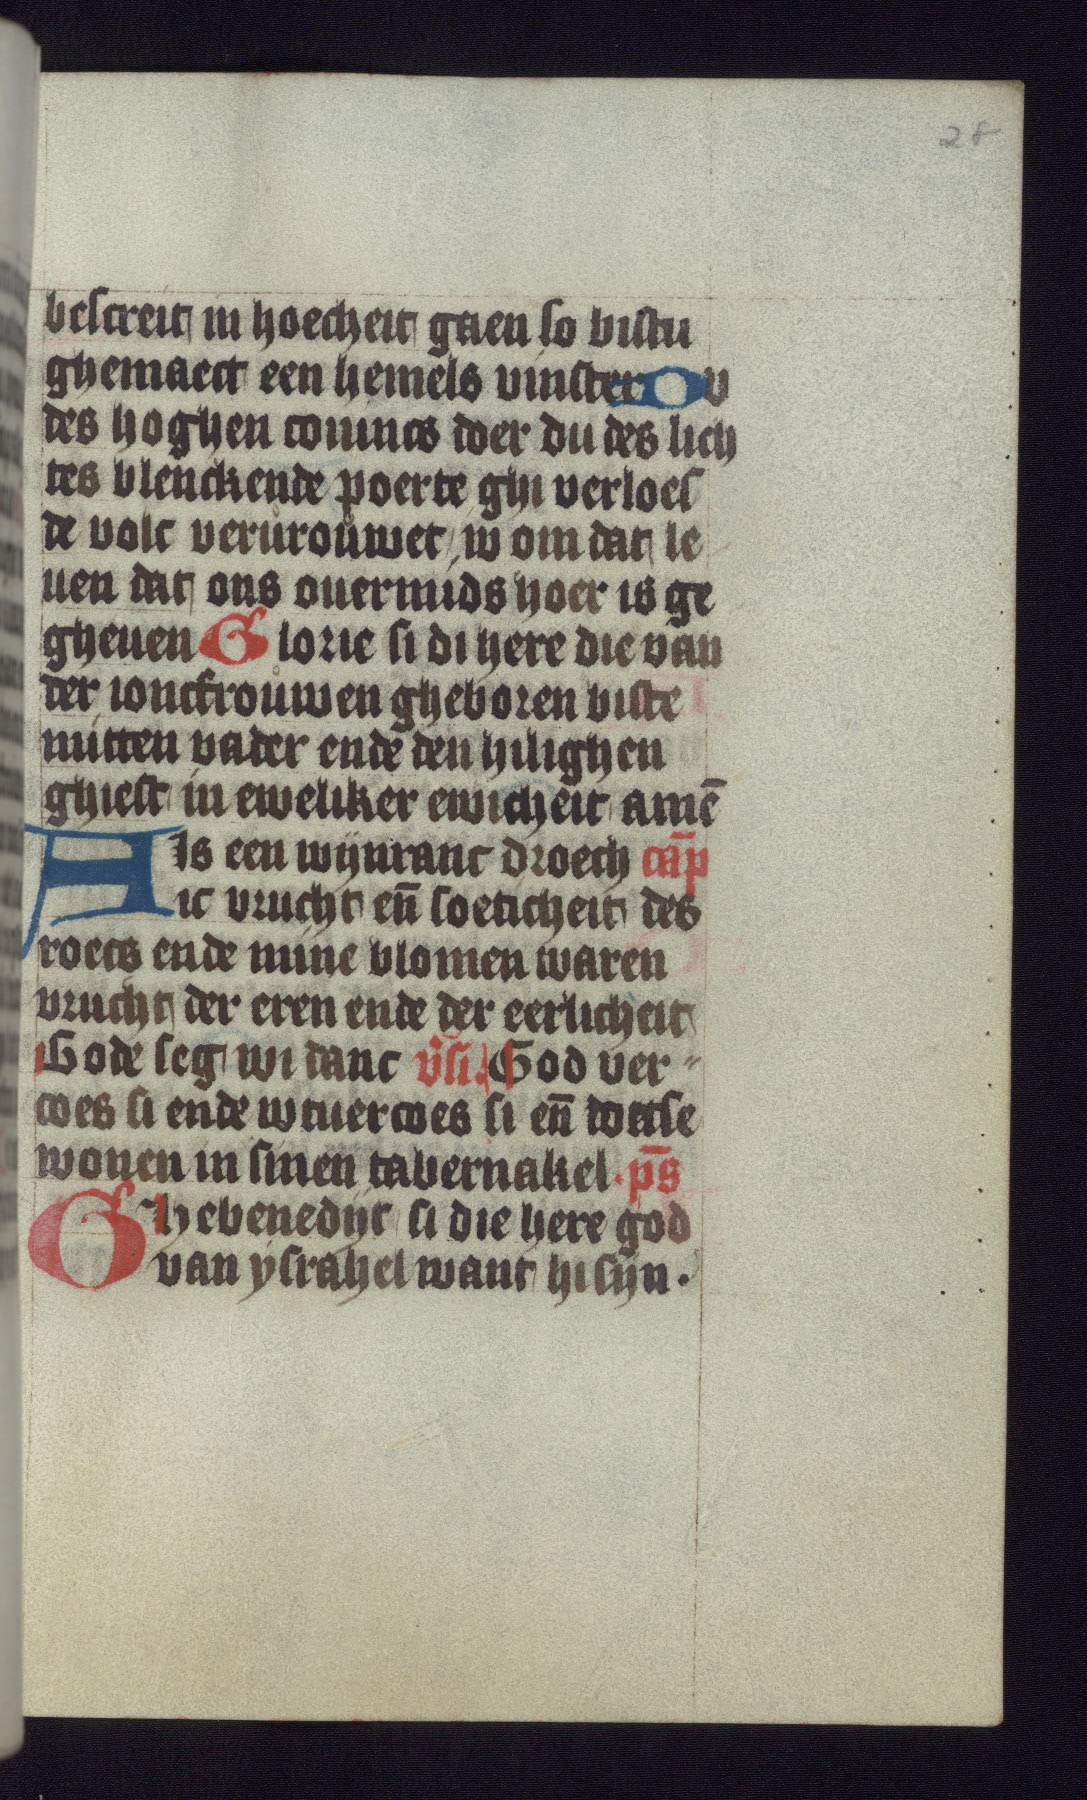 28
bescreit in hoecheit gaen so bistu
ghemaect een hemels vinster Ou
des hoghen conincs doer du des lich
tes blenckende poerte ghi verloes
de volc verurouwet w om dat le
uen dat ons ouermids hoer is ge
gheuen Glorie si di here die van
der ioncfrouwen gheboren biste
mitten vader ende den hilighen
ghiest in eweliker ewicheit amē
Als een wijnranc droech cāp
ic vrucht eñ soeticheit des
roecs ende mine blomen waren
vrucht der eren ende der eerlicheit
Gode seg wi danc v̄si. God ver-
coes si ende wtuercoes si eñ doetse
wonen in sinen tabernakel. p̄s
Ghebenedijt si die here god
van ysrahel want hi sijn.